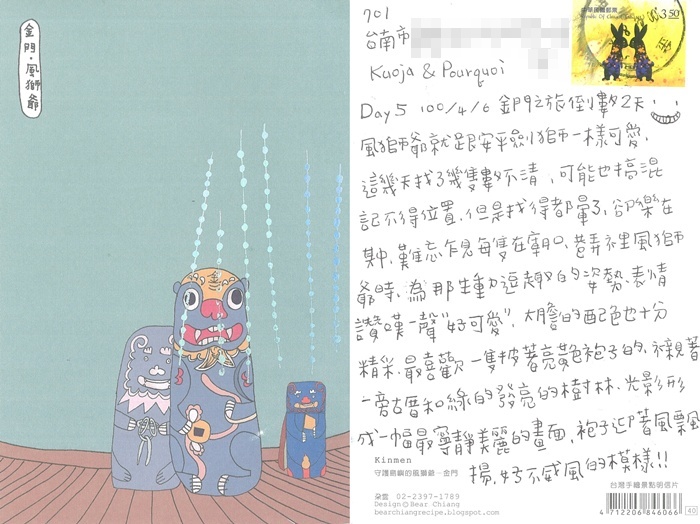 金門・風獅爺
701
台南市
中華民國郵票
3.50
Kuoja & Pourquoi
Day 5 100/4/6 金門之旅倒數2天
風獅爺就跟安平劍獅一樣可愛，
這幾天找了幾隻數不清，可能也搞混
記不得位置，但是找得都暈了，卻樂在
其中，難忘乍見每隻在廟口、巷弄裡風獅
爺時，為那生動逗趣的姿勢、表情
讚嘆一聲"好可愛"，大膽的配色也十分
精采，最喜歡一隻披著亮黃色袍子的，衬親著
一旁古厝和綠的發亮的樹林，光影形
成一幅最寧靜美麗的畫面，袍子迎著風飄
揚，好不威風的模樣!!
Kinmen
守護島嶼的風獅爺・金門
朵雲 02-2397-1789
Design©Bear Chiang
bearchiangrecipe.blogspot.com
台灣手繪景點明信片
4 712206 846066
40